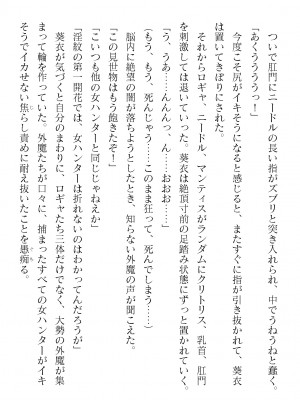 ついに肛門にニードルの長い指がズブリと突き入れられ、中でうねうねと蠢く。
「あくうううっ！」
今度こそ尻がイキそうになると感じると、またすぐに指が引き抜かれて、葵衣
は置いてきぼりにされた。
それからロギャ、ニードル、マンティスがランダムにクリトリス、乳首、肛門
を刺激しては退いていった。葵衣は絶頂寸前の足踏み状態にずっと置かれていく。
「う、うあ……んんんっ、ん……おおお……」
（もう、もう、死んじゃう……このまま狂って、死んでしまう……）
脳内に絶望の闇が落ちようとしたとき、知らない外魔の声が聞こえた。
「この見世物はもう飽きたぞ！」
「こいつも他の女ハンターと同じじゃねえか」
「淫紋の第一開花では、女ハンターは折れないのはわかってんだろうが」
葵衣が気づくと自分のまわりに、ロギャたち三体だけでなく、大勢の外魔が集
まって輪を作っていた。外魔たちが口々に、捕まったすべての女ハンターがイキ
そうでイカせない焦らし責めに耐え抜いたことを愚痴る。